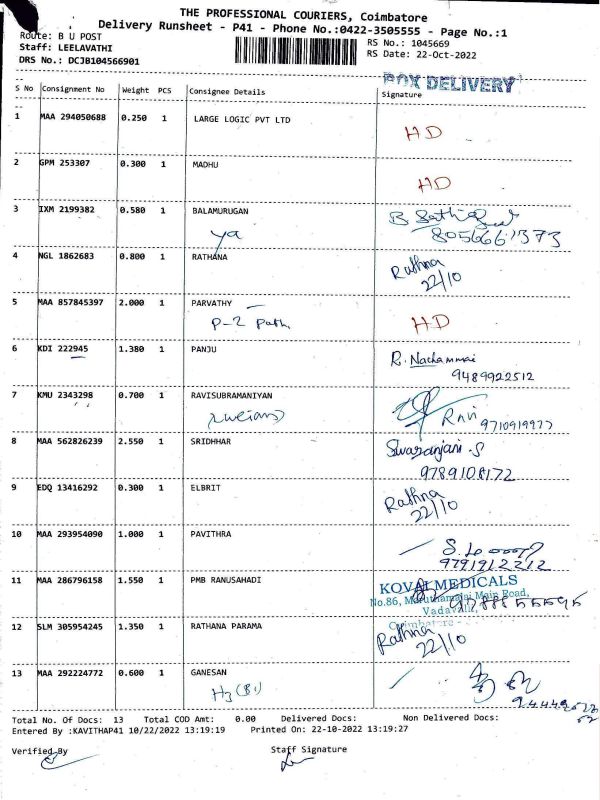 THE PROFESSIONAL COURIERS, Coimbatore
Delivery Runsheet - P41 - Phone No.:0422-3505555 - Page No.:1
Route: B U POST
Staff: LEELAVATHI
DRS No.: DCJB104566901
RS No.: 1045669
RS Date: 22-Oct-2022
POX DELIVERY
S No Consignment No Weight PCS Consignee Details Signature
1 MAA 294050688 0.250 1 LARGE LOGIC PVT LTD
HD
2 GPM 253307 0.300 1 MADHU
HD
3 IXM 2199382 0.580 1 BALAMURUGAN
ya
8056661373
4 NGL 1862683 0.800 1 RATHANA
Rathna
22/10
5 MAA 857845397 2.000 1 PARVATHY
P-2 Path
HD
6 KDI 222945 1.380 1 PANJU
R. Nachammai
9489922512
7 KMU 2343298 0.700 1 RAVISUBRAMANIYAN
Ravi
8 MAA 562826239 2.550 1 SRIDHHAR
Swaranjani S
9789108172
9 EDQ 13416292 0.300 1 ELBRIT
Rathna
22/10
10 MAA 293954090 1.000 1 PAVITHRA
9791912212
11 MAA 286796158 1.550 1 PMB RANUSAHADI
KOVAI MEDICALS
No.86, Maruthamalai Main Road,
Vadavalli,
Coimbatore -
12 SLM 305954245 1.350 1 RATHANA PARAMA
Rathna
22/10
13 MAA 292224772 0.600 1 GANESAN
H3 (B1)
Total No. Of Docs: 13 Total COD Amt: 0.00 Delivered Docs: Non Delivered Docs:
Entered By :KAVITHAP41 10/22/2022 13:19:19 Printed On: 22-10-2022 13:19:27
Verified By Staff Signature